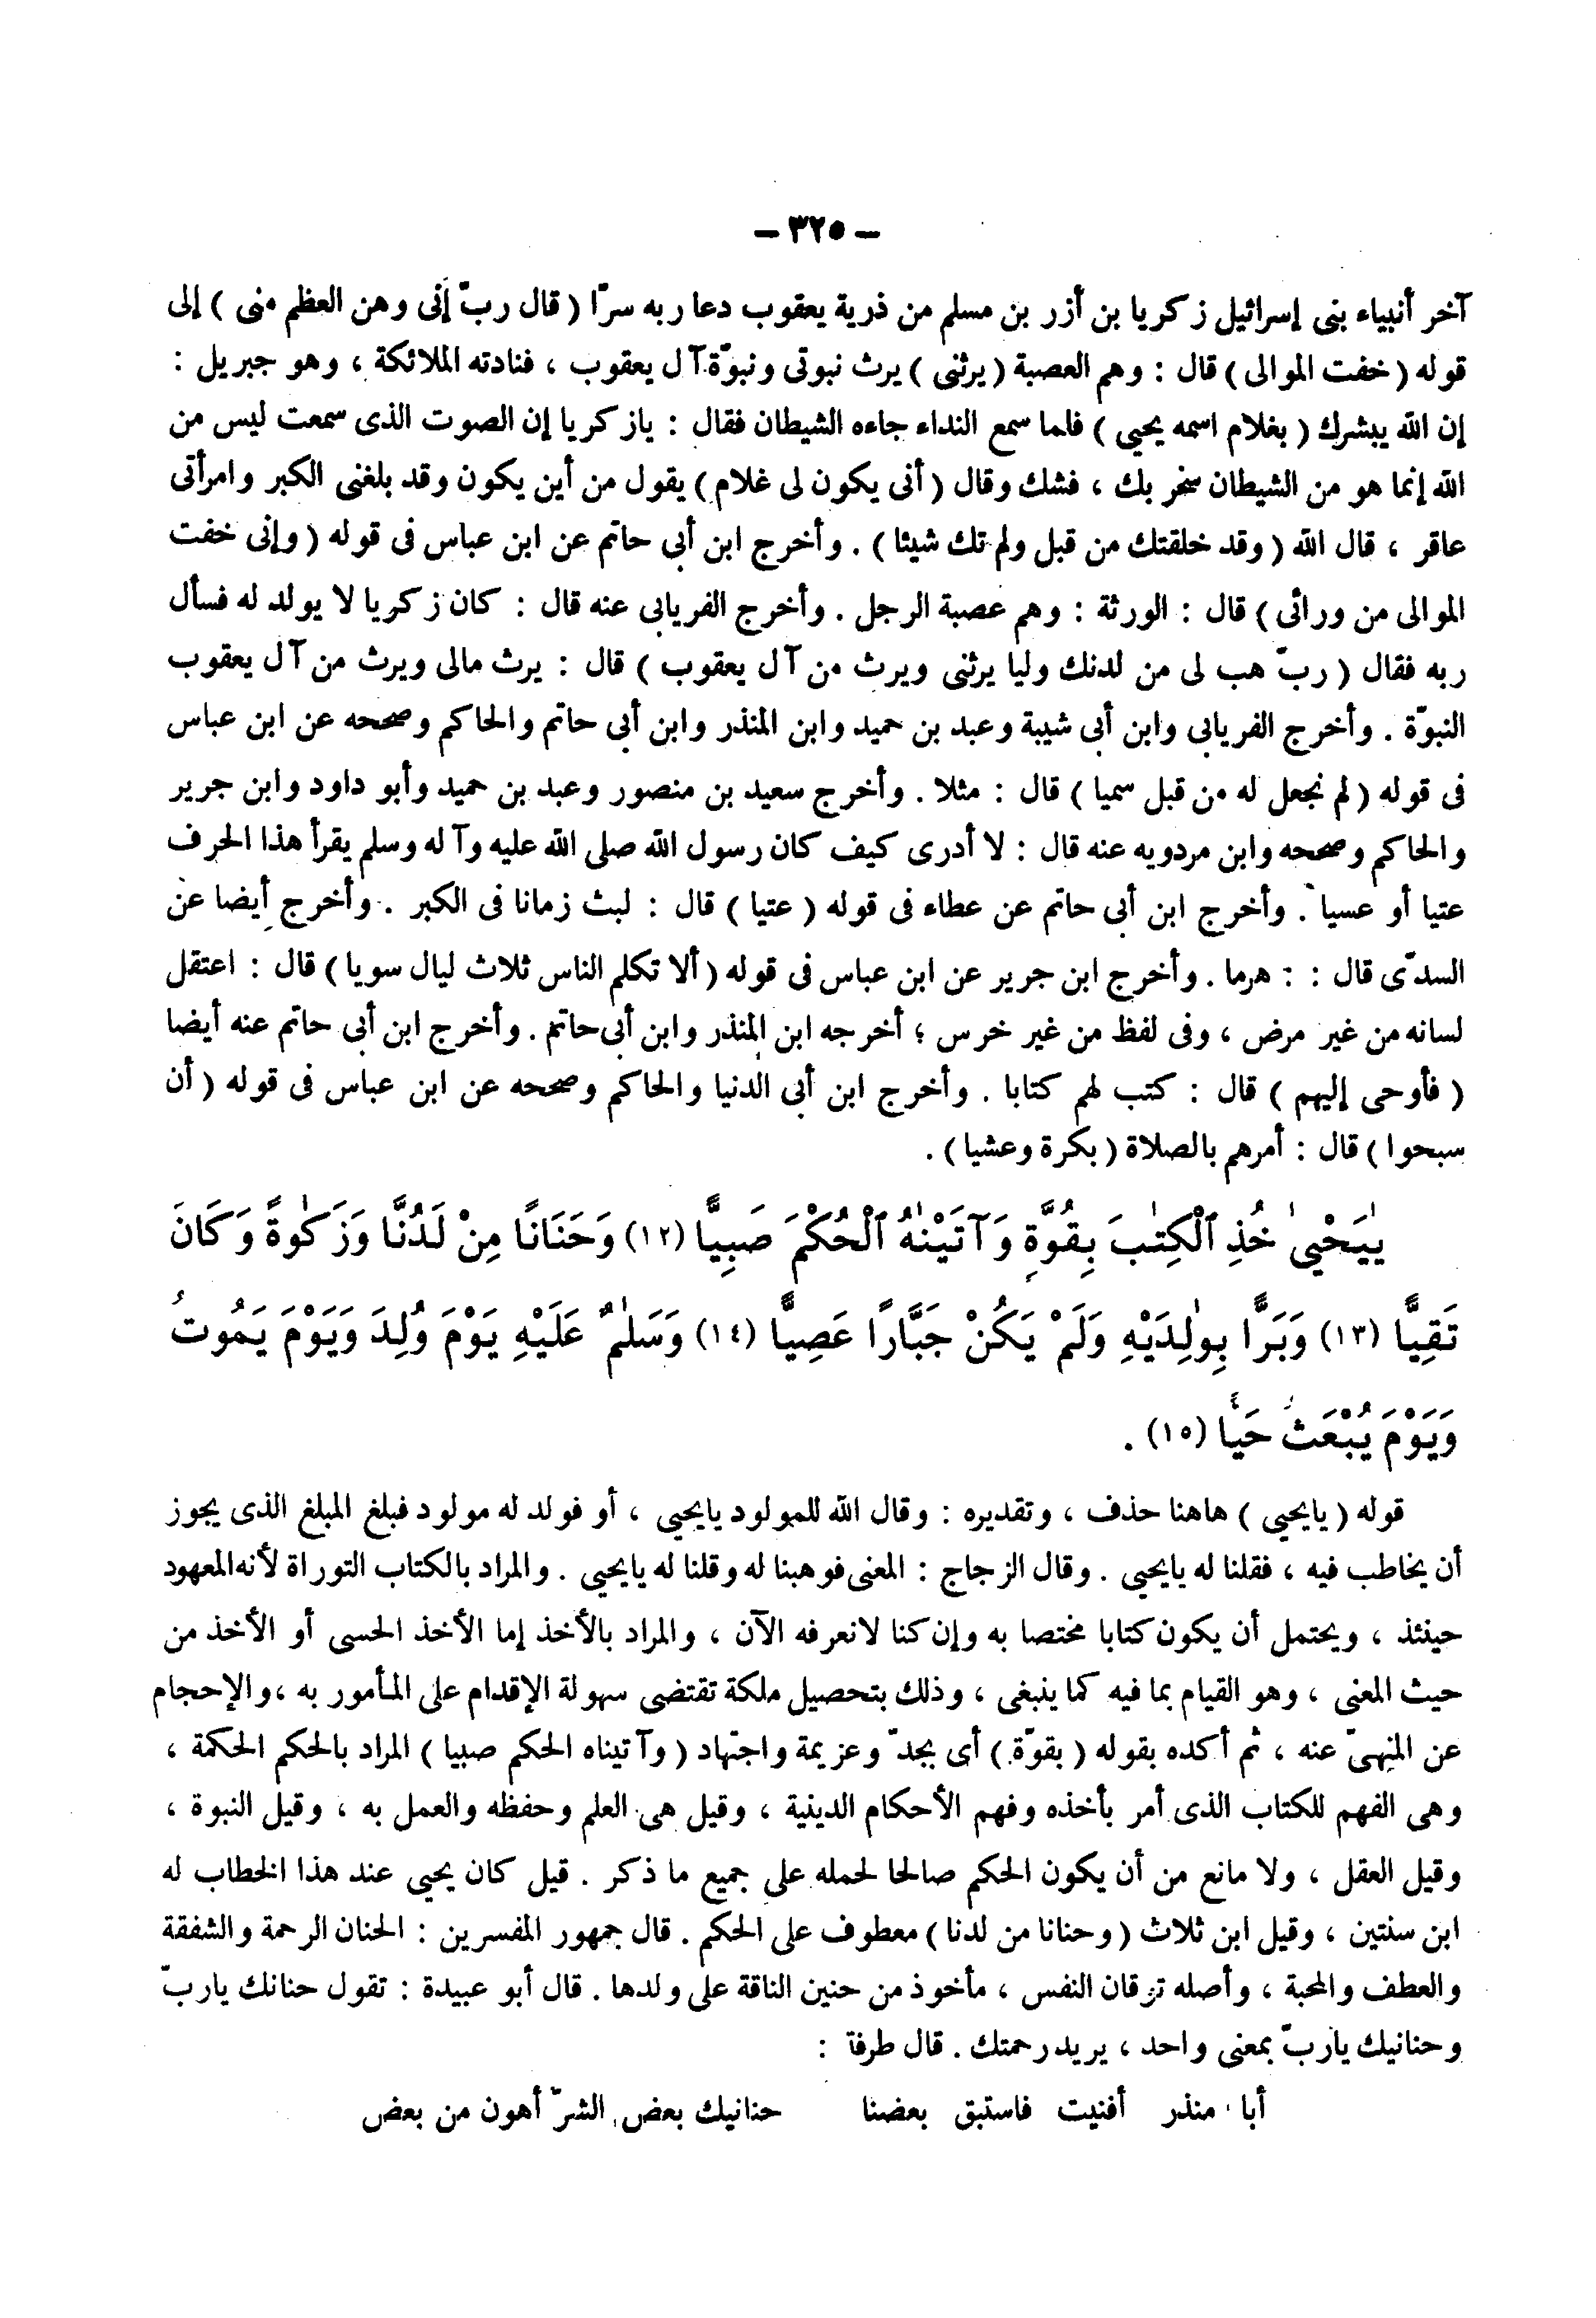 — ٣٢٥ —
آخر أنبياء بنى إسرائيل زكريا بن أزر بن مسلم من ذرية يعقوب دعا ربه سرّا ( قال ربّ إنى وهن العظم منى ) إلى
قوله ( خفت الموالى ) قال : وهم العصبة ( يرثنى ) يرث نبوتى ونبوّة آل يعقوب ، فنادته الملائكة ، وهو جبريل :
إن الله يبشرك ( بغلام اسمه يحيى ) فلما سمع النداء جاءه الشيطان فقال : يازكريا إن الصوت الذى سمعت ليس من
الله إنما هو من الشيطان سخر بك ، فشك وقال ( أنى يكون لى غلام ) يقول من أين يكون وقد بلغنى الكبر وامرأتى
عاقر ، قال الله ( وقد خلقتك من قبل ولم تك شيئا ) . وأخرج ابن أبى حاتم عن ابن عباس فى قوله ( وإنى خفت
الموالى من ورائى ) قال : الورثة : وهم عصبة الرجل . وأخرج الفريابى عنه قال : كان زكريا لا يولد له فسأل
ربه فقال ( ربّ هب لى من لدنك وليا يرثنى ويرث من آل يعقوب ) قال : يرث مالى ويرث من آل يعقوب
النبوّة . وأخرج الفريابى وابن أبى شيبة وعبد بن حميد وابن المنذر وابن أبى حاتم والحاكم وصححه عن ابن عباس
فى قوله ( لم نجعل له من قبل سميا ) قال : مثلا . وأخرج سعيد بن منصور وعبد بن حميد وأبو داود وابن جرير
والحاكم وصححه وابن مردويه عنه قال : لا أدرى كيف كان رسول الله صلى الله عليه وآله وسلم يقرأ هذا الحرف
عتيا أو عسيا . وأخرج ابن أبى حاتم عن عطاء فى قوله ( عتيا ) قال : لبث زمانا فى الكبر . وأخرج أيضا عن
السدّى قال : : هرما . وأخرج ابن جرير عن ابن عباس فى قوله ( ألا تكلم الناس ثلاث ليال سويا ) قال : اعتقل
لسانه من غير مرض ، وفى لفظ من غير خرس ؛ أخرجه ابن المنذر وابن أبى حاتم . وأخرج ابن أبى حاتم عنه أيضا
( فأوحى إليهم ) قال : كتب لهم كتابا . وأخرج ابن أبى الدنيا والحاكم وصححه عن ابن عباس فى قوله ( أن
سبحوا ) قال : أمرهم بالصلاة ( بكرة وعشيا ) .
يٰيَحْيىٰ خُذِ ٱلْكِتٰبَ بِقُوَّةٍ وَآتَيْنٰهُ ٱلْحُكْمَ صَبِيًّا (١٢) وَحَنَانًا مِنْ لَدُنَّا وَزَكٰوةً وَكَانَ
تَقِيًّا (١٣) وَبَرًّا بِوٰلِدَيْهِ وَلَمْ يَكُنْ جَبَّارًا عَصِيًّا (١٤) وَسَلٰمٌ عَلَيْهِ يَوْمَ وُلِدَ وَيَوْمَ يَمُوتُ
وَيَوْمَ يُبْعَثُ حَيًّا (١٥) .
قوله ( يايحيى ) هاهنا حذف ، وتقديره : وقال الله للمولود يايحيى ، أو فولد له مولود فبلغ المبلغ الذى يجوز
أن يخاطب فيه ، فقلنا له يايحيى . وقال الزجاج : المعنى فوهبنا له وقلنا له يايحيى . والمراد بالكتاب التوراة لأنه المعهود
حينئذ ، ويحتمل أن يكون كتابا مختصا به وإن كنا لانعرفه الآن ، والمراد بالأخذ إما الأخذ الحسى أو الأخذ من
حيث المعنى ، وهو القيام بما فيه كما ينبغى ، وذلك بتحصيل ملكة تقتضى سهولة الإقدام على المأمور به ، والإحجام
عن المنهىّ عنه ، ثم أكده بقوله ( بقوّة ) أى بجدّ وعزيمة واجتهاد ( وآتيناه الحكم صبيا ) المراد بالحكم الحكمة ،
وهى الفهم للكتاب الذى أمر بأخذه وفهم الأحكام الدينية ، وقيل هى العلم وحفظه والعمل به ، وقيل النبوة ،
وقيل العقل ، ولا مانع من أن يكون الحكم صالحا لحمله على جميع ما ذكر . قيل كان يحيى عند هذا الخطاب له
ابن سنتين ، وقيل ابن ثلاث ( وحنانا من لدنا ) معطوف على الحكم . قال جمهور المفسرين : الحنان الرحمة والشفقة
والعطف والمحبة ، وأصله توقان النفس ، مأخوذ من حنين الناقة على ولدها . قال أبو عبيدة : تقول حنانك يارب‌ّ
وحنانيك ياربّ بمعنى واحد ، يريد رحمتك . قال طرفة :
أبا منذر أفنيت فاستبق بعضنا حنانيك بعض الشرّ أهون من بعض